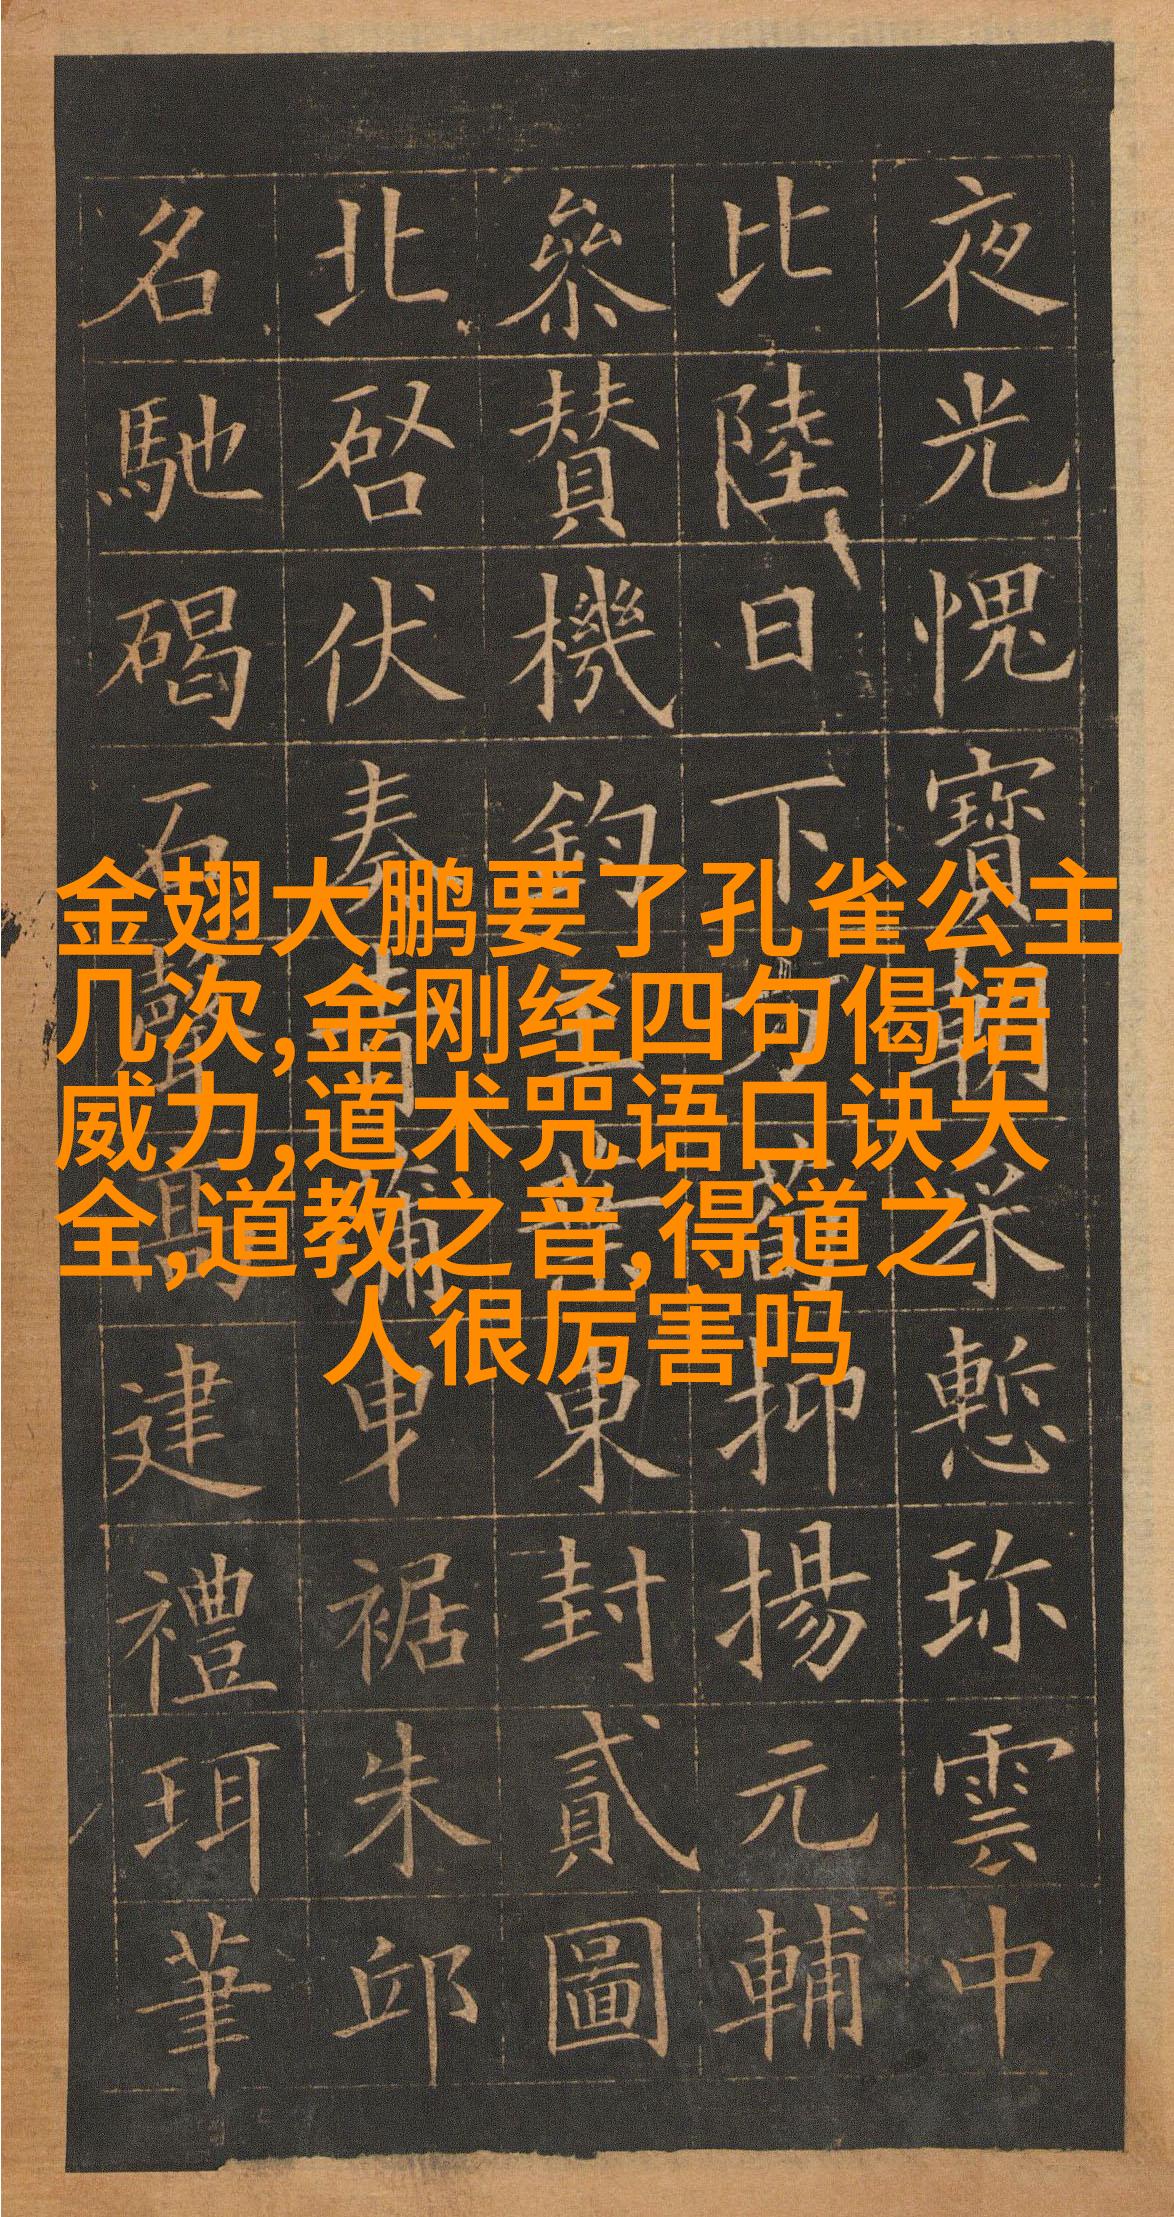 金翅大鹏要了孔雀公主
几次,金刚经四句偈语
威力,道术咒语口诀大
全,道教之音,得道之
人很厉害吗
夜光愧寶朝采慙珎雲中
比陸日下方荀抑揚元輔
參賛機鈞東封貳圖
北啓伏奏青蒲曳裾朱邸
名馳碣石聲高建禮珥筆